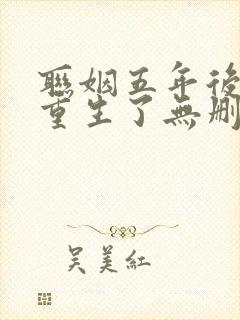 聯姻五年後
重生了無刪
吳美紅